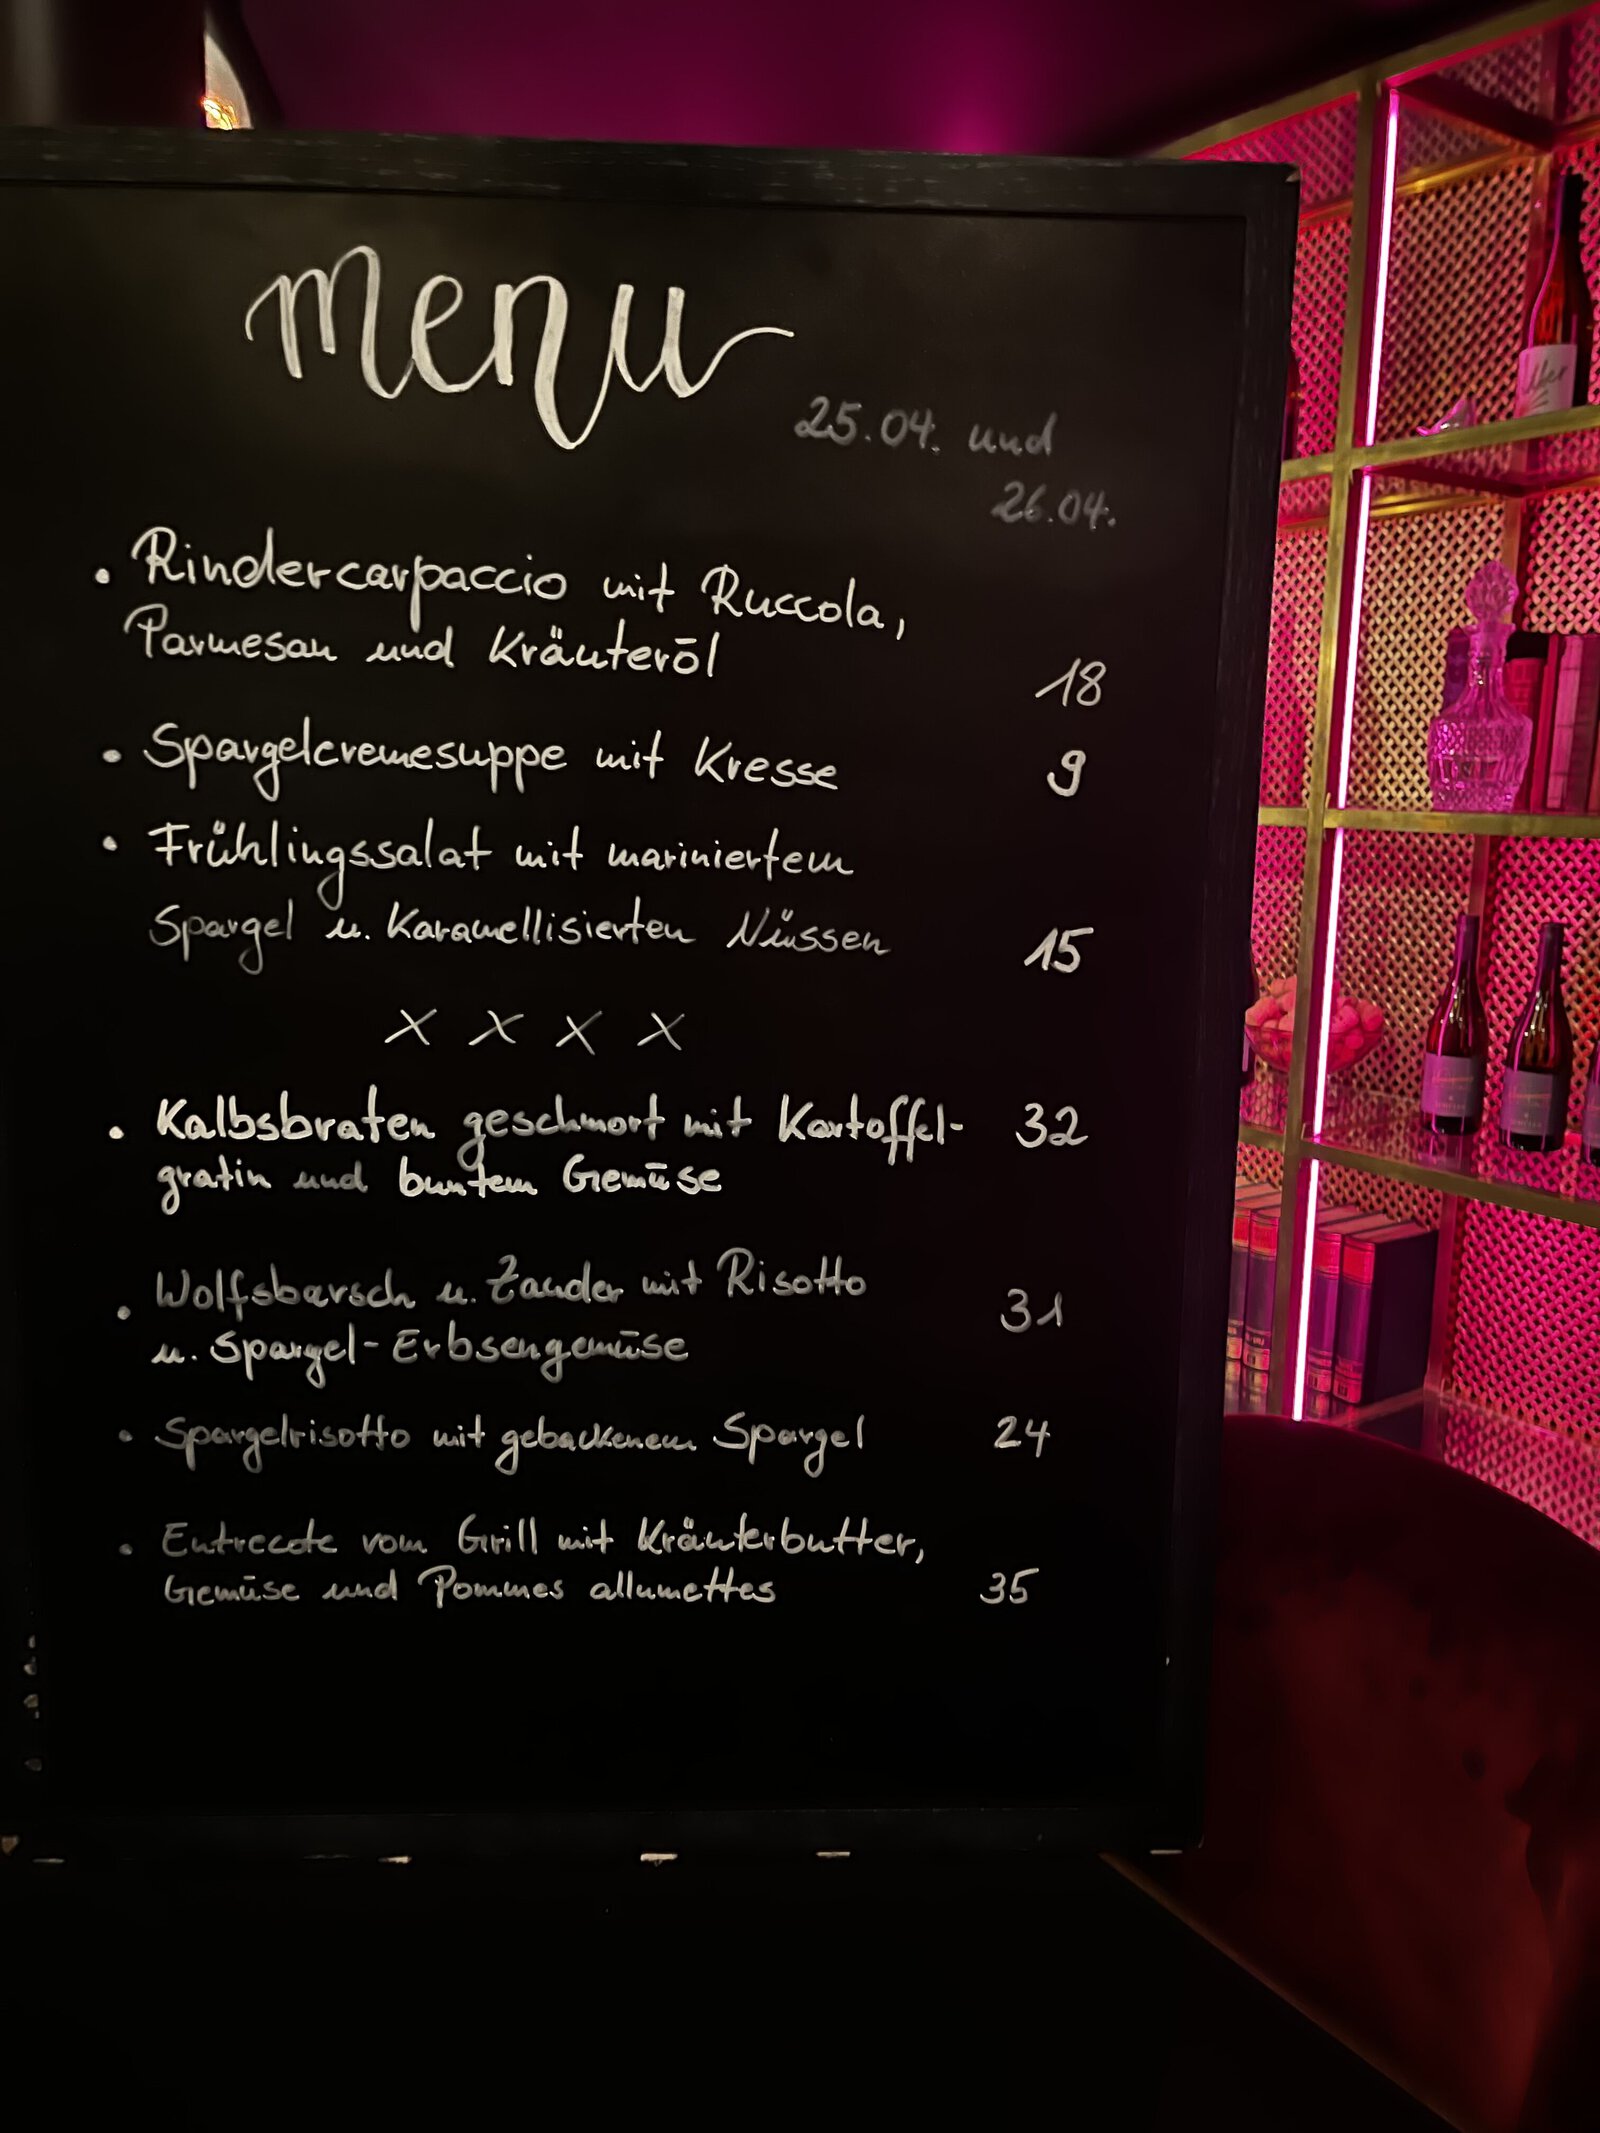 menu
25.04. und
26.04.
• Rindercarpaccio mit Ruccola,
Parmesan und Kräuteröl
18
• Spargelcremesuppe mit Kresse 9
• Frühlingssalat mit mariniertem
Spargel u. Karamellisierten Nüssen 15
X X X X
• Kalbsbraten geschmort mit Kartoffel- 32
gratin und buntem Gemüse
• Wolfsbarsch u. Zander mit Risotto 31
u. Spargel-Erbsengemüse
• Spargelrisotto mit gebackenem Spargel 24
• Entrecote vom Grill mit Kräuterbutter,
Gemüse und Pommes allumettes 35